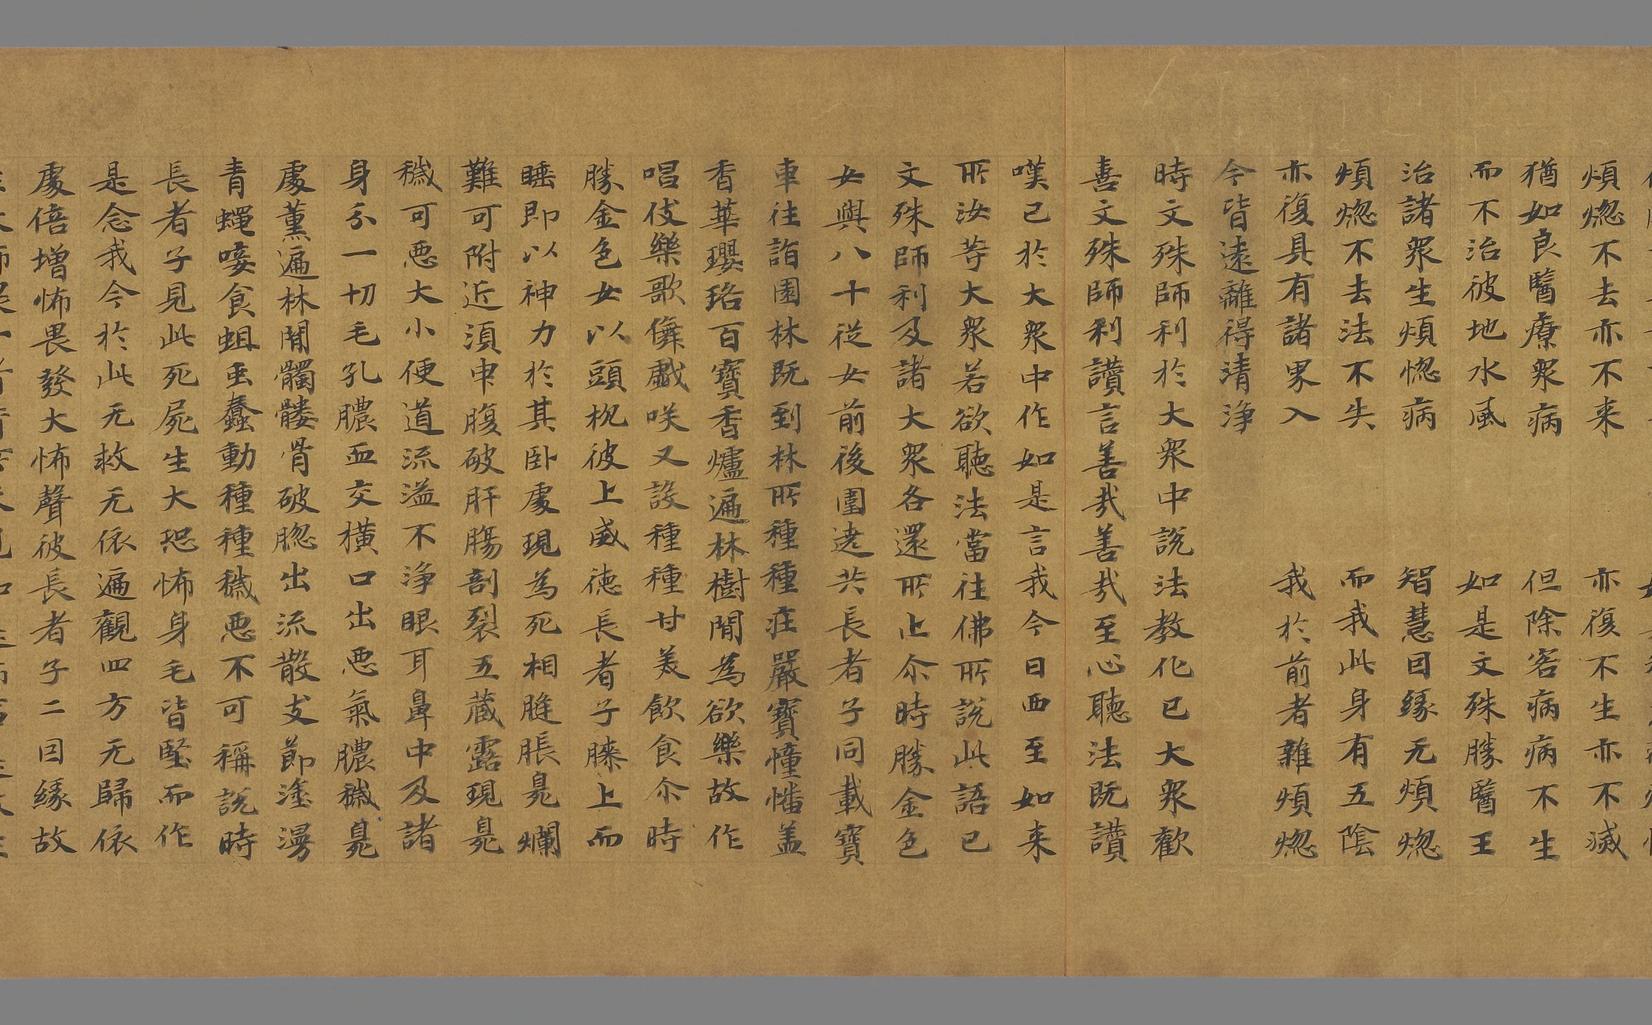 煩惚不去亦不来　亦復不生亦不滅
猶如良醫療衆病　但除客病病不生
而不治彼地水風　如是文殊勝醫王
治諸衆生煩惚病　智慧因緣无煩惚
煩惚不去法不失　而我此身有五陰
亦復具有諸界入　我於前者雜煩惚
今皆遠離得清淨
時文殊師利於大衆中説法教化已大衆歡
喜文殊師利讚言善哉善哉至心聽法既讚
嘆已於大衆中作如是言我今日西至如来
所汝等大衆若欲聽法當往佛所説此語已
文殊師利及諸大衆各還所止尒時勝金色
女與八十從女前後圍遶共長者子同載寶
車往詣園林既到林所種種莊嚴寶憧幡盖
香華瓔珞百寶香爐遍林樹間為欲樂故作
唱伎樂歌儛戲咲又設種種甘美飲食尒時
勝金色女以頭枕彼上威德長者子膝上而
睡即以神力於其卧處現為死相胮脹臰爛
難可附近湏申腹破肝腸剖裂五藏露現臰
穢可惡大小便道流溢不淨眼耳鼻中及諸
身分一切毛孔膿血交橫口出惡氣膿穢臰
處薰遍林間髑髏骨破𦛁出流散支節塗漫
青蠅唼食蛆虫蠢動種種穢惡不可稱説時
長者子見此死屍生大恐怖身毛皆竪而作
是念我今於此无救无依遍觀四方无歸依
處倍增怖畏發大怖聲彼長者子二因緣故